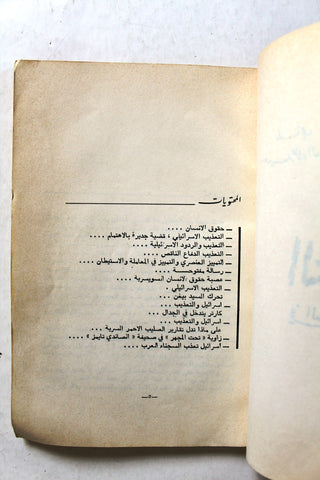 المحتويات
ــ حقوق الانسان ....
ــ التعذيب الاسرائيلي ، قضية جديرة بالاهتمام ....
ــ التعذيب والردود الاسرائيلية ....
ــ التعذيب الدفاع الناقص ....
ــ التمييز العنصري والتمييز في المعاملة والاستيطان ....
ــ رسالة مفتوحـــة ....
ــ عصبة حقوق الانسان السويسرية ....
ــ التعذيب الاسرائيلي .
ــ تحرك السيد بيغن ....
ــ اسرائيل والتعذيب ....
ــ كارتر يتدخل في الجدال ....
ــ اسرائيل والتعذيب ....
ــ على ماذا تدل تقارير الصليب الاحمر السرية ....
ــ زاوية « تحت المجهر » في صحيفة « الصاندي تايمز » ....
ــ اسرائيل تعذب السجناء العرب ....
ــ ٥ ــ